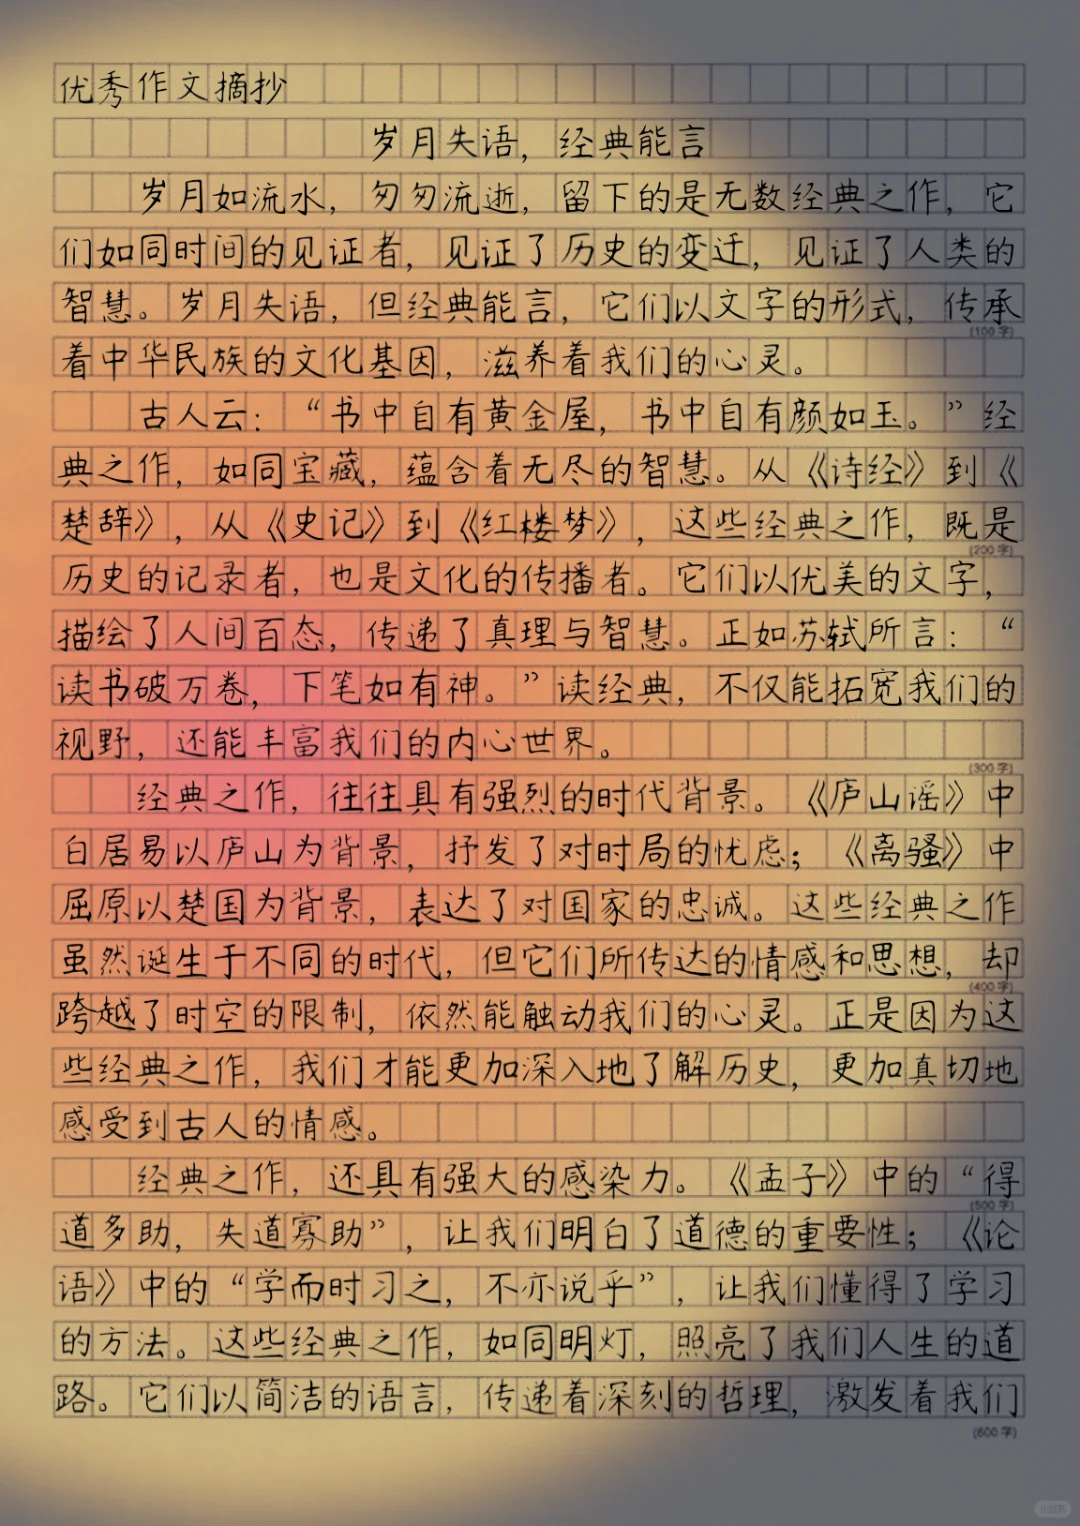 优秀作文摘抄
岁月失语，经典能言
岁月如流水，匆匆流逝，留下的是无数经典之作，它
们如同时间的见证者，见证了历史的变迁，见证了人类的
智慧。岁月失语，但经典能言，它们以文字的形式，传承
(100字)
着中华民族的文化基因，滋养着我们的心灵。
古人云：“书中自有黄金屋，书中自有颜如玉。”经
典之作，如同宝藏，蕴含着无尽的智慧。从《诗经》到《
楚辞》，从《史记》到《红楼梦》，这些经典之作，既是
(200字)
历史的记录者，也是文化的传播者。它们以优美的文字，
描绘了人间百态，传递了真理与智慧。正如苏轼所言：“
读书破万卷，下笔如有神。”读经典，不仅能拓宽我们的
视野，还能丰富我们的内心世界。
(300字)
经典之作，往往具有强烈的时代背景。《庐山谣》中
白居易以庐山为背景，抒发了对时局的忧虑；《离骚》中
屈原以楚国为背景，表达了对国家的忠诚。这些经典之作
虽然诞生于不同的时代，但它们所传达的情感和思想，却
(400字)
跨越了时空的限制，依然能触动我们的心灵。正是因为这
些经典之作，我们才能更加深入地了解历史，更加真切地
感受到古人的情感。
经典之作，还具有强大的感染力。《孟子》中的“得
(500字)
道多助，失道寡助”，让我们明白了道德的重要性；《论
语》中的“学而时习之，不亦说乎”，让我们懂得了学习
的方法。这些经典之作，如同明灯，照亮了我们人生的道
路。它们以简洁的语言，传递着深刻的哲理，激发着我们
(600字)
小红书